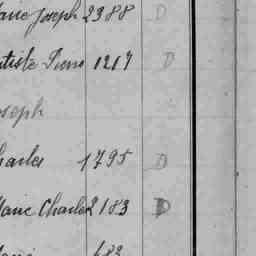 Marie Joseph 2988 D
Baptiste Pierre 1217 D
Joseph
Charles 1795 D
Marie Charles 2183 D
683